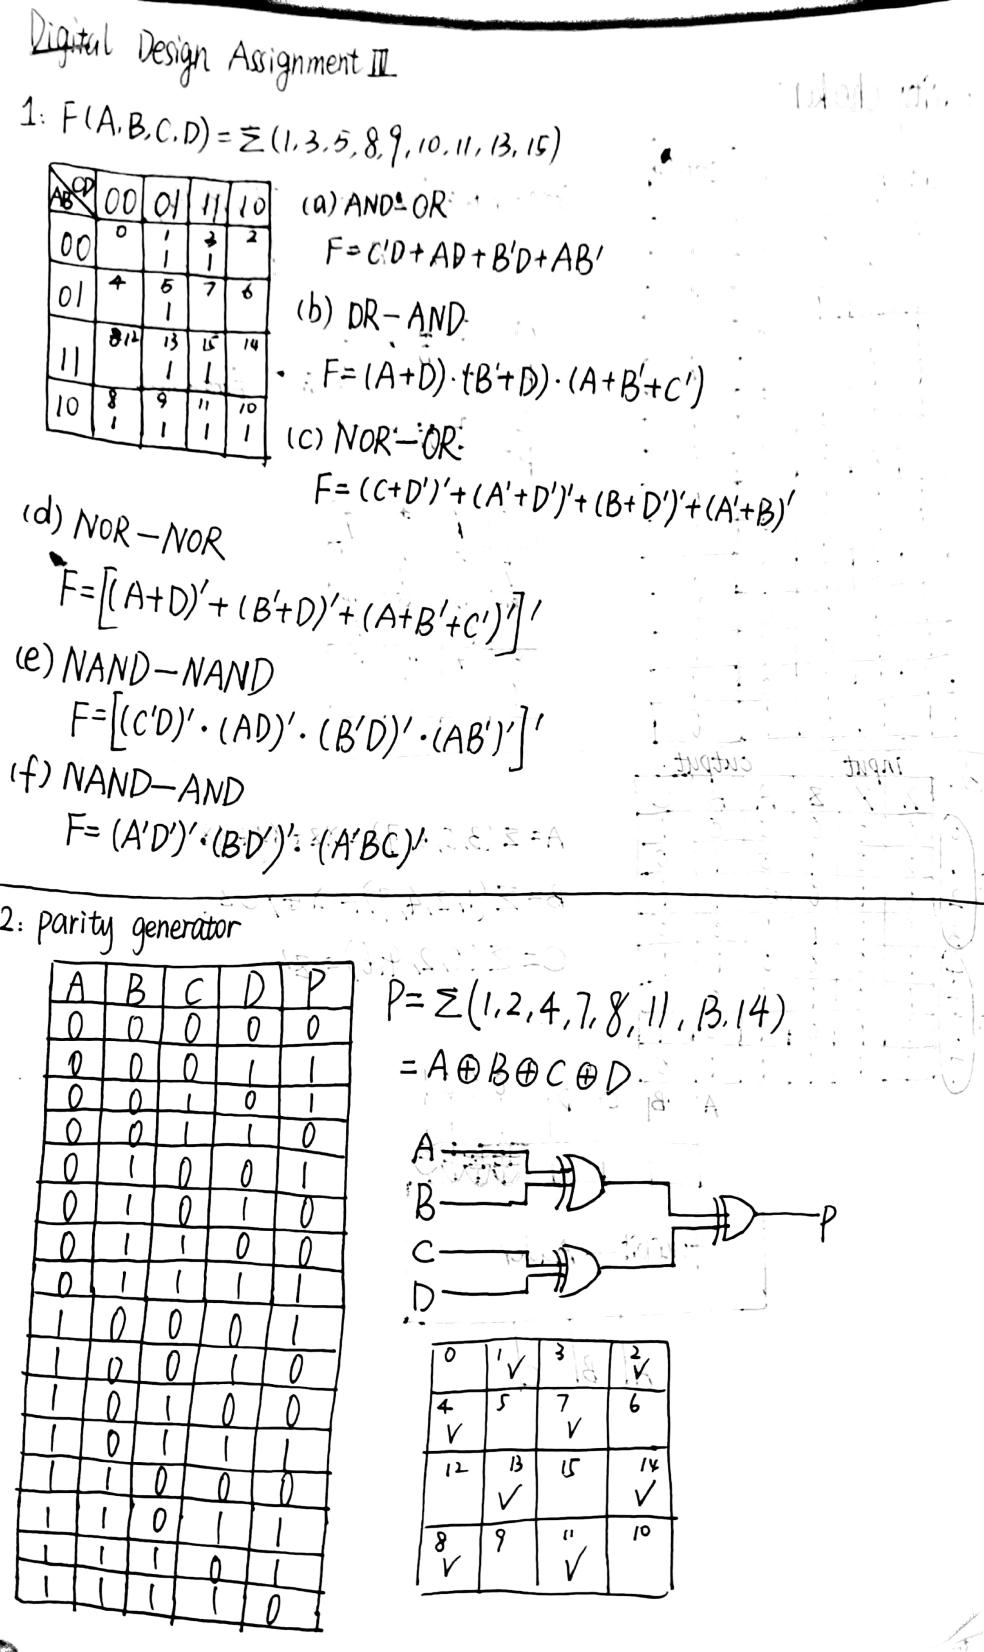 Digital Design Assignment III
1: F(A,B,C,D) = Σ(1,3,5,8,9,10,11,13,15)
AB CD 00 01 11 10
00 0 1 1 3 1 2
01 4 5 1 7 6
11 12 13 1 15 1 14
10 8 1 9 1 11 1 10 1
(a) AND-OR
F = C'D + AD + B'D + AB'
(b) OR-AND
F = (A+D)·(B'+D)·(A+B'+C')
(c) NOR-OR
F = (C+D')' + (A'+D')' + (B+D')' + (A'+B)'
(d) NOR-NOR
F = [(A+D)' + (B'+D)' + (A+B'+C')']'
(e) NAND-NAND
F = [(C'D)'·(AD)'·(B'D)'·(AB')']'
(f) NAND-AND
F = (A'D')'·(BD')'·(A'BC)'
2: parity generator
A B C D P
0 0 0 0 0
0 0 0 1 1
0 0 1 0 1
0 0 1 1 0
0 1 0 0 1
0 1 0 1 0
0 1 1 0 0
0 1 1 1 1
1 0 0 0 1
1 0 0 1 0
1 0 1 0 0
1 0 1 1 1
1 1 0 0 0
1 1 0 1 1
1 1 1 0 1
1 1 1 1 0
P = Σ(1,2,4,7,8,11,13,14)
= A⊕B⊕C⊕D
A
B
C
D
P
0 1 ✓ 3 2 ✓
4 ✓ 5 7 ✓ 6
12 13 ✓ 15 14 ✓
8 ✓ 9 11 ✓ 10